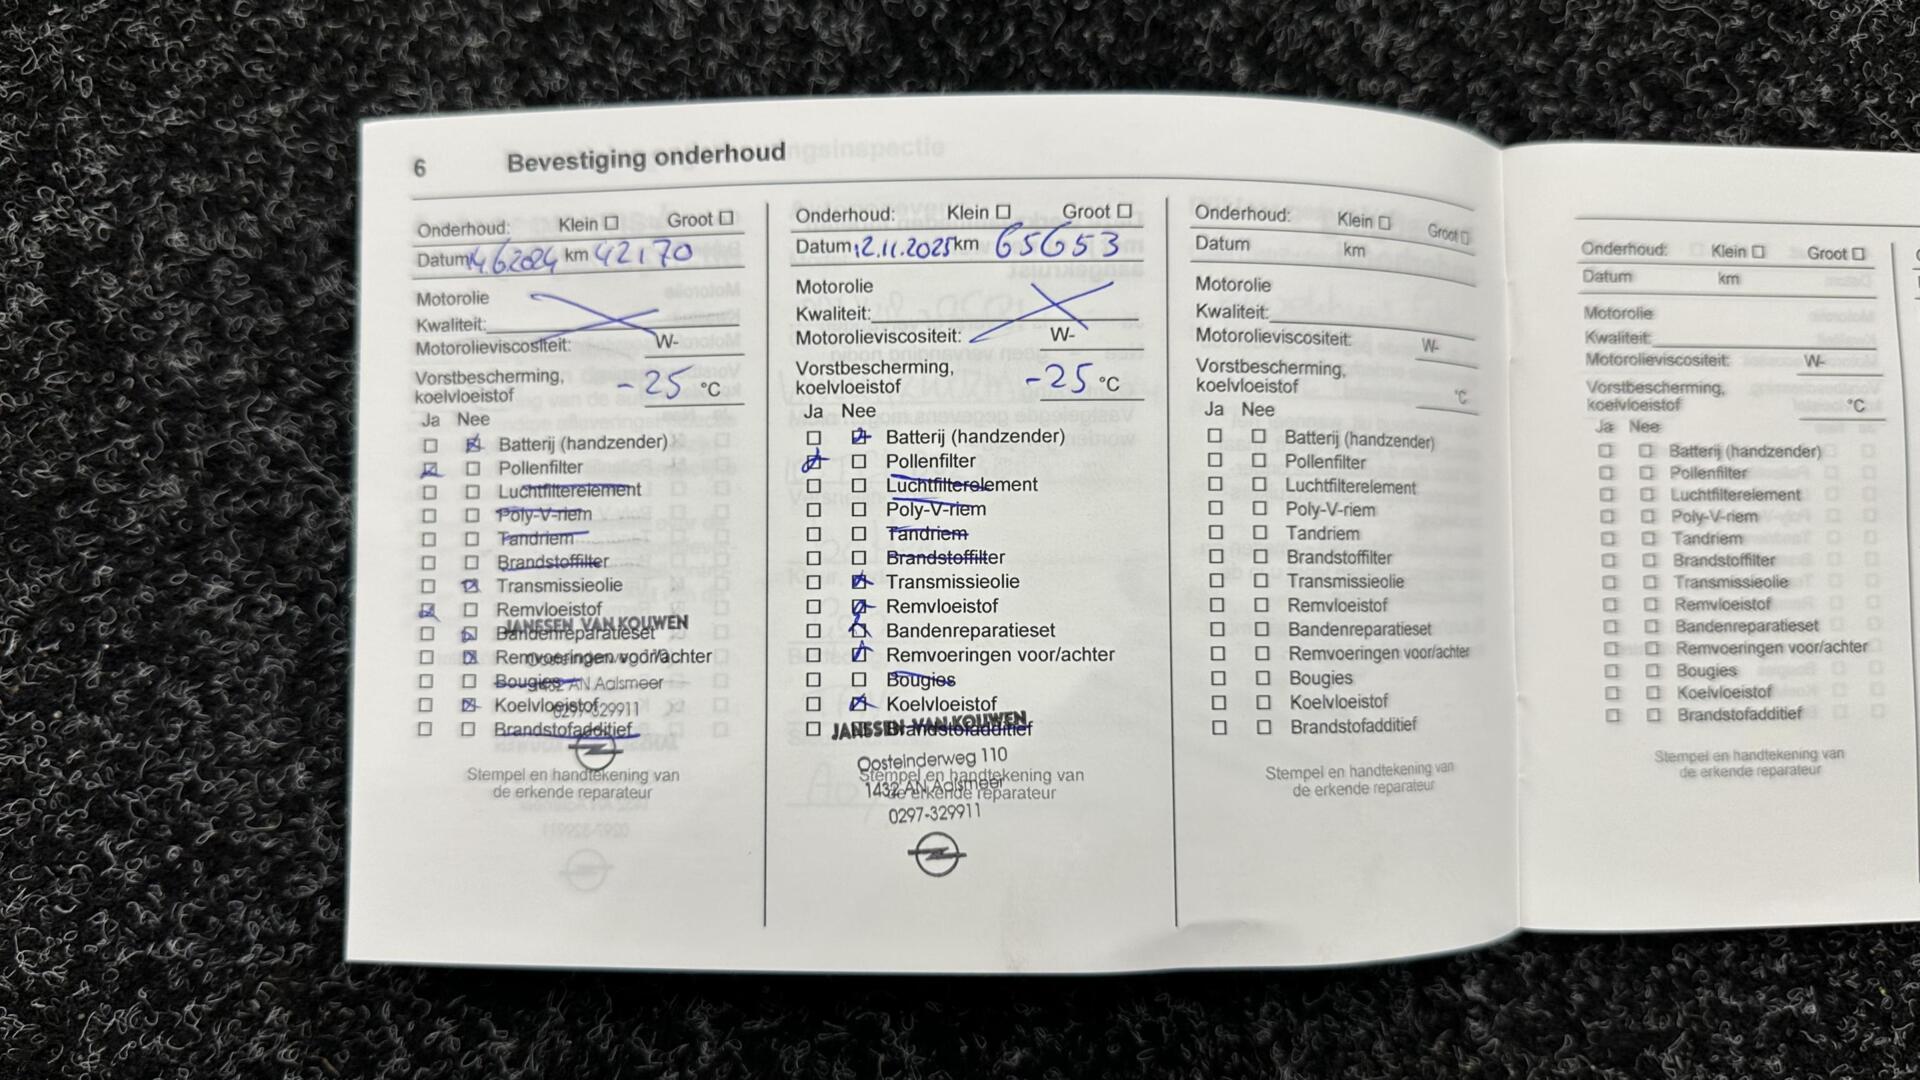 6 Bevestiging onderhoud
Onderhoud: Klein ☐ Groot ☐
Datum 14.6.2024 km 42170
Motorolie
Kwaliteit:
Motorolieviscositeit: W-
Vorstbescherming,
koelvloeistof -25 °C
Ja Nee
Batterij (handzender)
Pollenfilter
Luchtfilterelement
Poly-V-riem
Tandriem
Brandstoffilter
Transmissieolie
Remvloeistof
JANSSEN VAN KOUWEN
Bandenreparatieset
Remvoeringen voor/achter
Bougies
1432 AN Aalsmeer
Koelvloeistof
0297-329911
Brandstofadditief
Stempel en handtekening van
de erkende reparateur
Onderhoud: Klein ☐ Groot ☐
Datum 12.11.2025 km 65653
Motorolie
Kwaliteit:
Motorolieviscositeit: W-
Vorstbescherming,
koelvloeistof -25 °C
Ja Nee
Batterij (handzender)
Pollenfilter
Luchtfilterelement
Poly-V-riem
Tandriem
Brandstoffilter
Transmissieolie
Remvloeistof
Bandenreparatieset
Remvoeringen voor/achter
Bougies
Koelvloeistof
Brandstofadditief
JANSSEN VAN KOUWEN
Oosteinderweg 110
Stempel en handtekening van
1432 AN Aalsmeer
de erkende reparateur
0297-329911
Onderhoud: Klein ☐ Groot ☐
Datum km
Motorolie
Kwaliteit:
Motorolieviscositeit: W-
Vorstbescherming,
koelvloeistof °C
Ja Nee
Batterij (handzender)
Pollenfilter
Luchtfilterelement
Poly-V-riem
Tandriem
Brandstoffilter
Transmissieolie
Remvloeistof
Bandenreparatieset
Remvoeringen voor/achter
Bougies
Koelvloeistof
Brandstofadditief
Stempel en handtekening van
de erkende reparateur
Onderhoud: Klein ☐ Groot ☐
Datum km
Motorolie
Kwaliteit:
Motorolieviscositeit: W-
Vorstbescherming,
koelvloeistof °C
Ja Nee
Batterij (handzender)
Pollenfilter
Luchtfilterelement
Poly-V-riem
Tandriem
Brandstoffilter
Transmissieolie
Remvloeistof
Bandenreparatieset
Remvoeringen voor/achter
Bougies
Koelvloeistof
Brandstofadditief
Stempel en handtekening van
de erkende reparateur